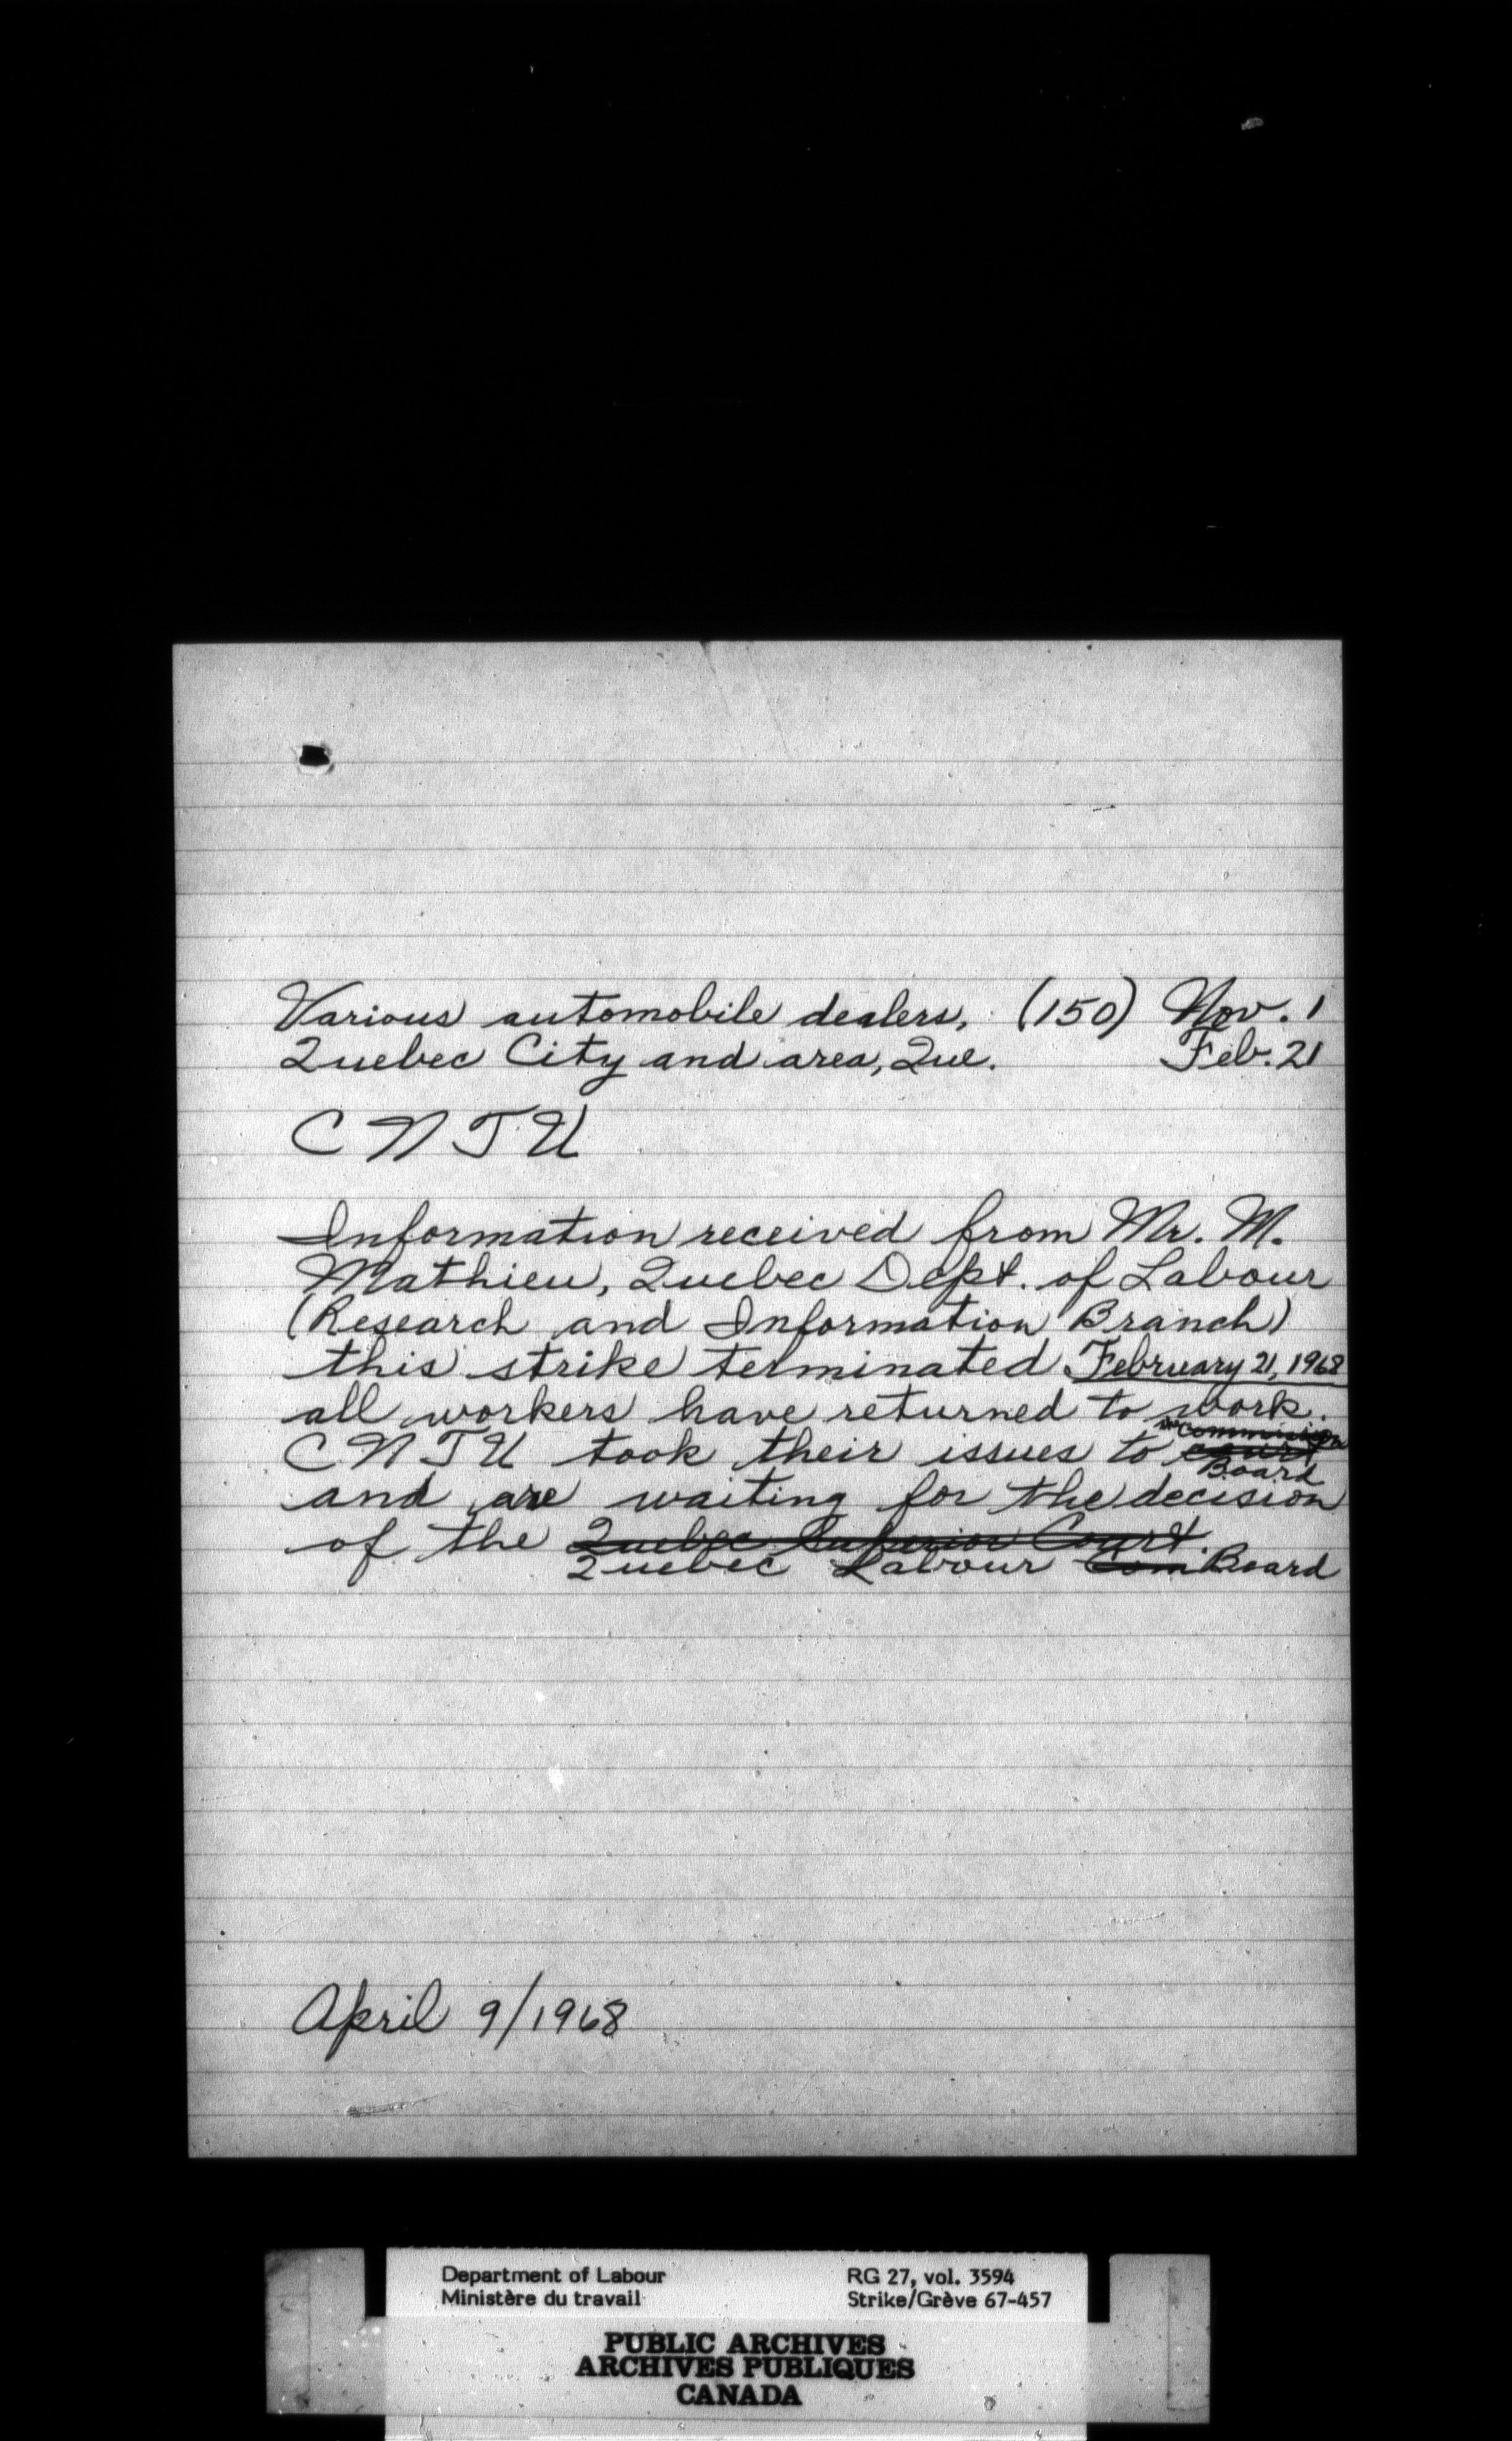 Various automobile dealers, (150) Nov. 1
Quebec City and area, Que. Feb. 21
C N T U
Information received from Mr. M.
Mathieu, Quebec Dept. of Labour
(Research and Information Branch)
this strike terminated February 21, 1968
all workers have returned to work.
the commission
C N T U took their issues to court
Board
and are waiting for the decision
of the Quebec Superior Court.
Quebec Labour Com Board
April 9/1968
Department of Labour RG 27, vol. 3594
Ministère du travail Strike/Grève 67-457
PUBLIC ARCHIVES
ARCHIVES PUBLIQUES
CANADA